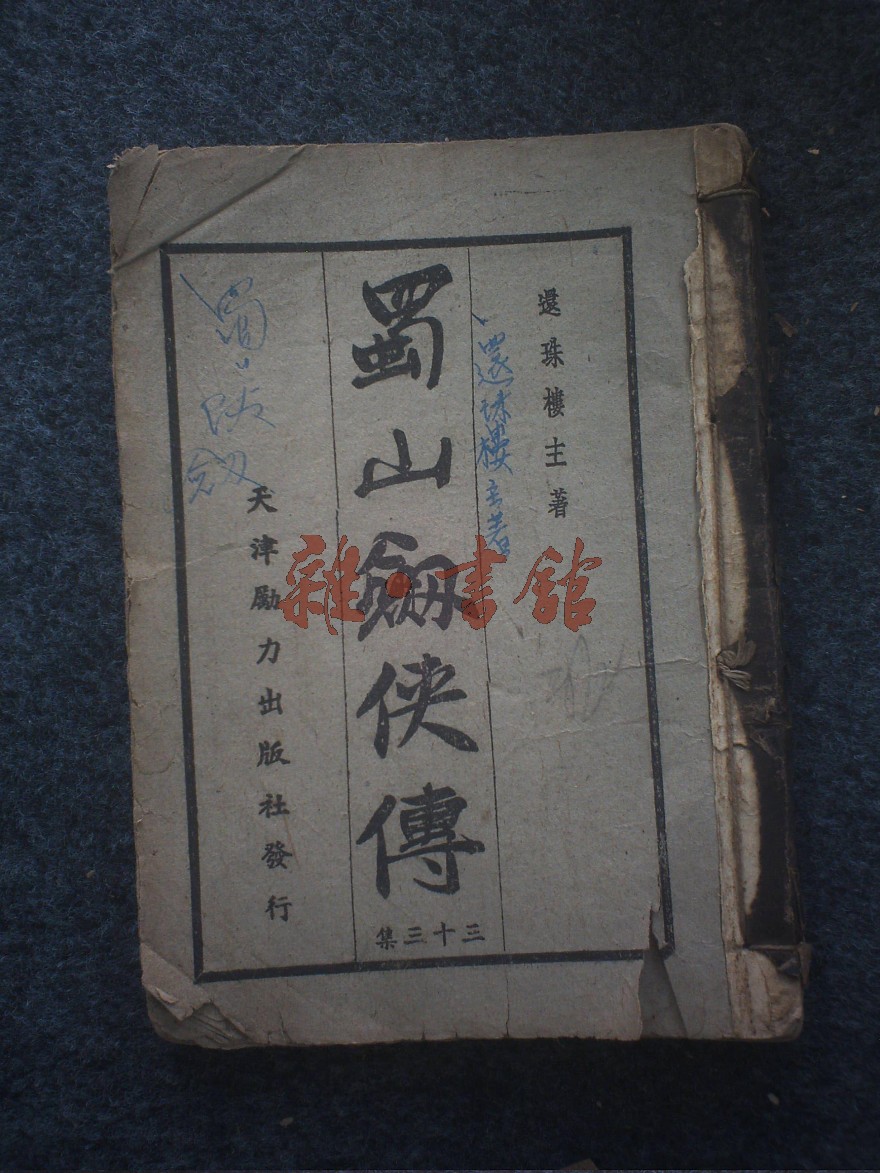 還珠樓主著
還珠樓主著
蜀山劍俠傳
三十三集
天津勵力出版社發行
蜀山
劍
雜·書館